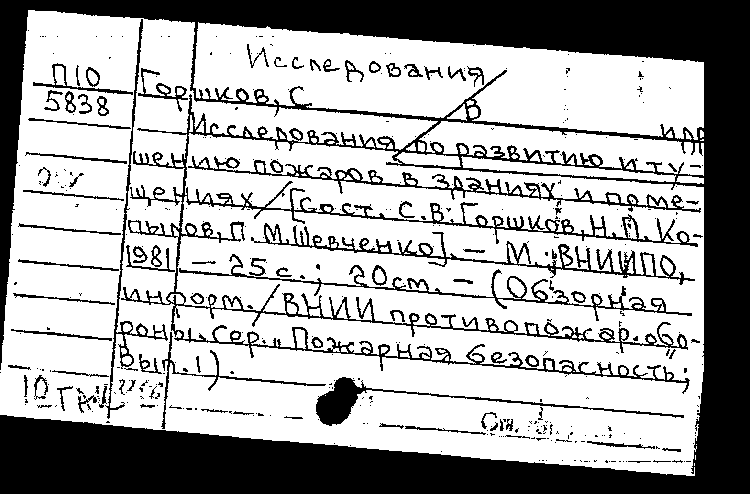 Исследования
П10
5838
Горшков, С В и др
Исследования по развитию и ту-
шению пожаров в зданиях и поме-
щениях / [Сост. С.В. Горшков, Н.П. Ко-
пылов, П.М. Шевченко]. — М.: ВНИИПО,
1981 — 25 с.; 20 см. — (Обзорная
информ. / ВНИИ противопожар. обо-
роны. Сер. „Пожарная безопасность;
Вып. 1).
10